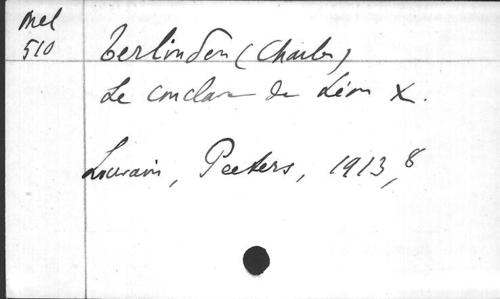 Mel
510
Terlinden (Charles)
Le conclave de Léon X.
Louvain, Peeters, 1913, 8